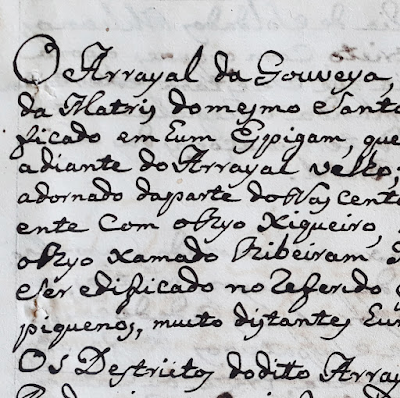 O Arrayal da Gouveya,
da Matris domesmo Santo
ficado em Eum Espigam, que
adiante do Arrayal velho,
adornado daparte do Nascent
ente Com oRyo Xiqueiro,
oRyo xamado Ribeiram
eSer edificado no Referido
piquenos, muito distantes Eun
Os Destrictos doditto Array